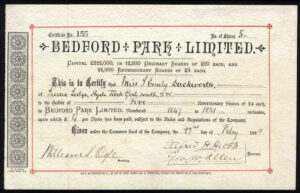 Certificate No. 155 No. of Shares 5
BEDFORD PARK LIMITED.
CAPITAL £225,000, IN 12,500 ORDINARY SHARES OF £10 EACH, AND
25,000 REVERSIONARY SHARES OF £4 EACH.
This is to Certify that Miss Emily Duckworth
of Lodge, Hyde Park South, S.W.
is the Holder of Five Reversionary Shares of £4 each,
BEDFORD PARK LIMITED. Numbered 1847 to 1851
upon which £ per Share has been paid, subject to the Rules and Regulations of the Company.
Given under the Common Seal of the Company, the 22nd day of